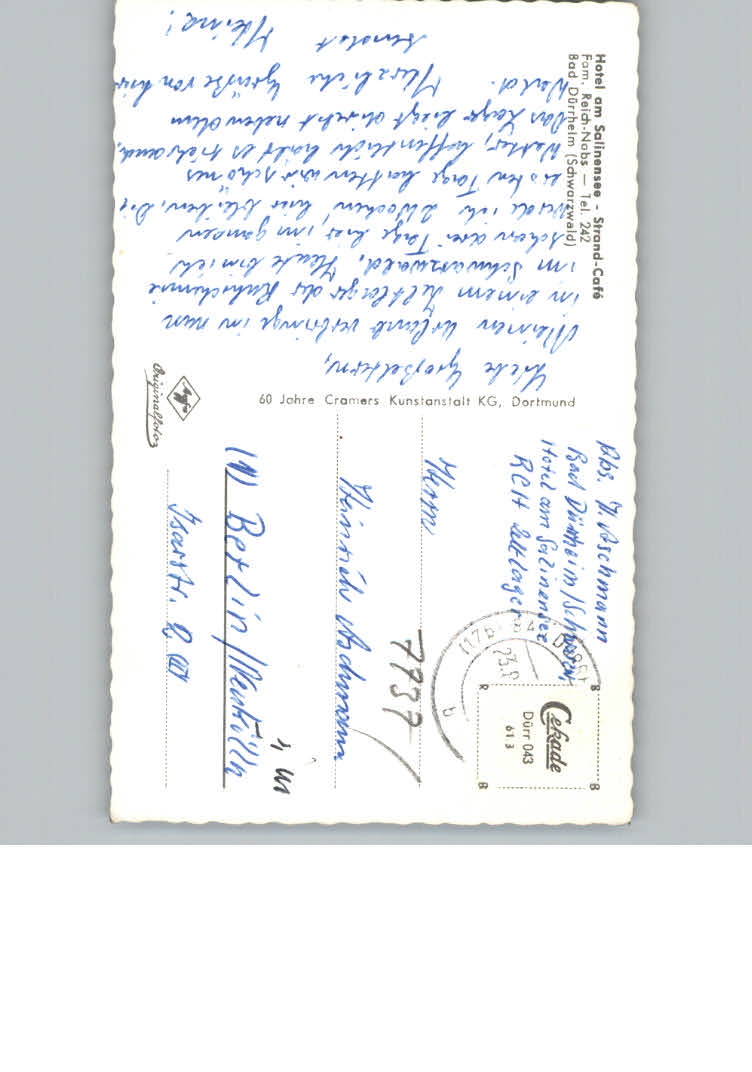 Hotel am Salinensee - Strand-Café
Fam. Reich-Nobs — Tel. 242
Bad Dürrheim (Schwarzwald)
Liebe Großeltern,
Meinen Urlaub verbringe ich nun
in einem Zeltlager der Ruhrchemie
im Schwarzwald. Heute bin ich
schon drei Tage hier im ganzen
werde ich 2 Wochen hier bleiben. Die
ersten Tage hatten wir schönes
Wetter, hoffentlich hält es
Das Lager liegt direkt neben dem
Wald. Herzliche Grüße von hier
sendet
Heinz!
60 Jahre Cramers Kunstanstalt KG, Dortmund
Agfa
Originalfoto
Abs. H. Aschmann
Bad Dürrheim/Schwarzw.
Hotel am Salinensee
RCH Zeltlager
(17b) BAD DÜRRH
23.
b
Cekade
Dürr 043
61 3
R
B
B
B
Herrn
Heinrich Aschmann
7737
(1) Berlin/Neukölln
1, M
Isarstr. 2 III